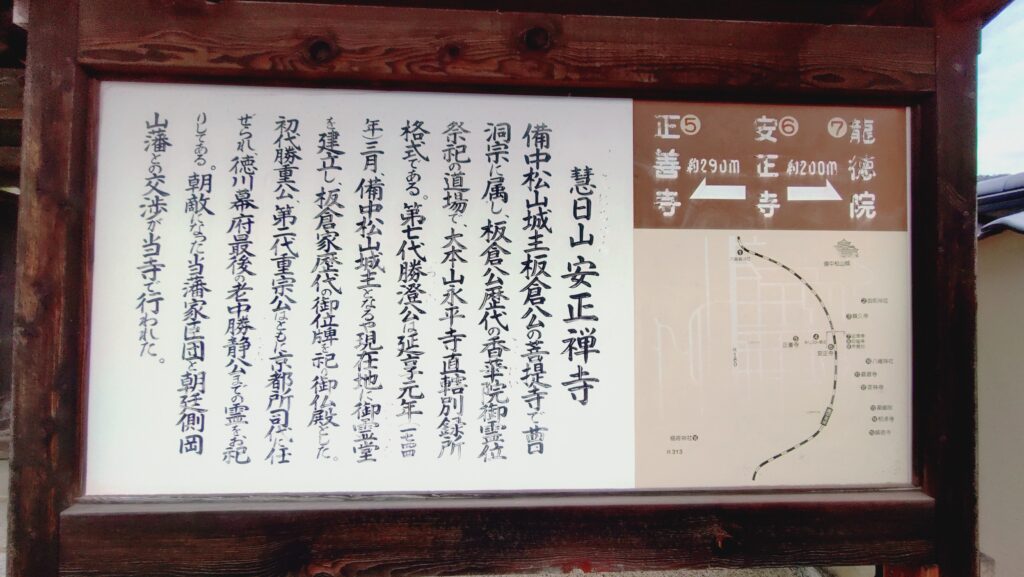 慧日山 安正禅寺
備中松山城主板倉公の菩提寺で曹
洞宗に属し、板倉公歴代の香華院御霊位
祭祀の道場で、大本山永平寺直轄別録所
格式である。第七代勝澄公は延享元年一七四四
年三月、備中松山城主となるや現在地に御霊堂
を建立し、板倉家歴代の御位牌を祀る御仏殿とした。
初代勝重公、第二代重宗公はともに京都所司代に任
ぜられ、徳川幕府最後の老中勝静公までの霊をお祀
りしてある。朝敵となった当藩家臣団と朝廷側岡
山藩との交渉が当寺で行われた。
正善寺 ⑤
約290m
安正寺 ⑥
約200m
龍徳院 ⑦
備中松山城
正善寺
安正寺
八幡神社
稲荷神社
R180
R313